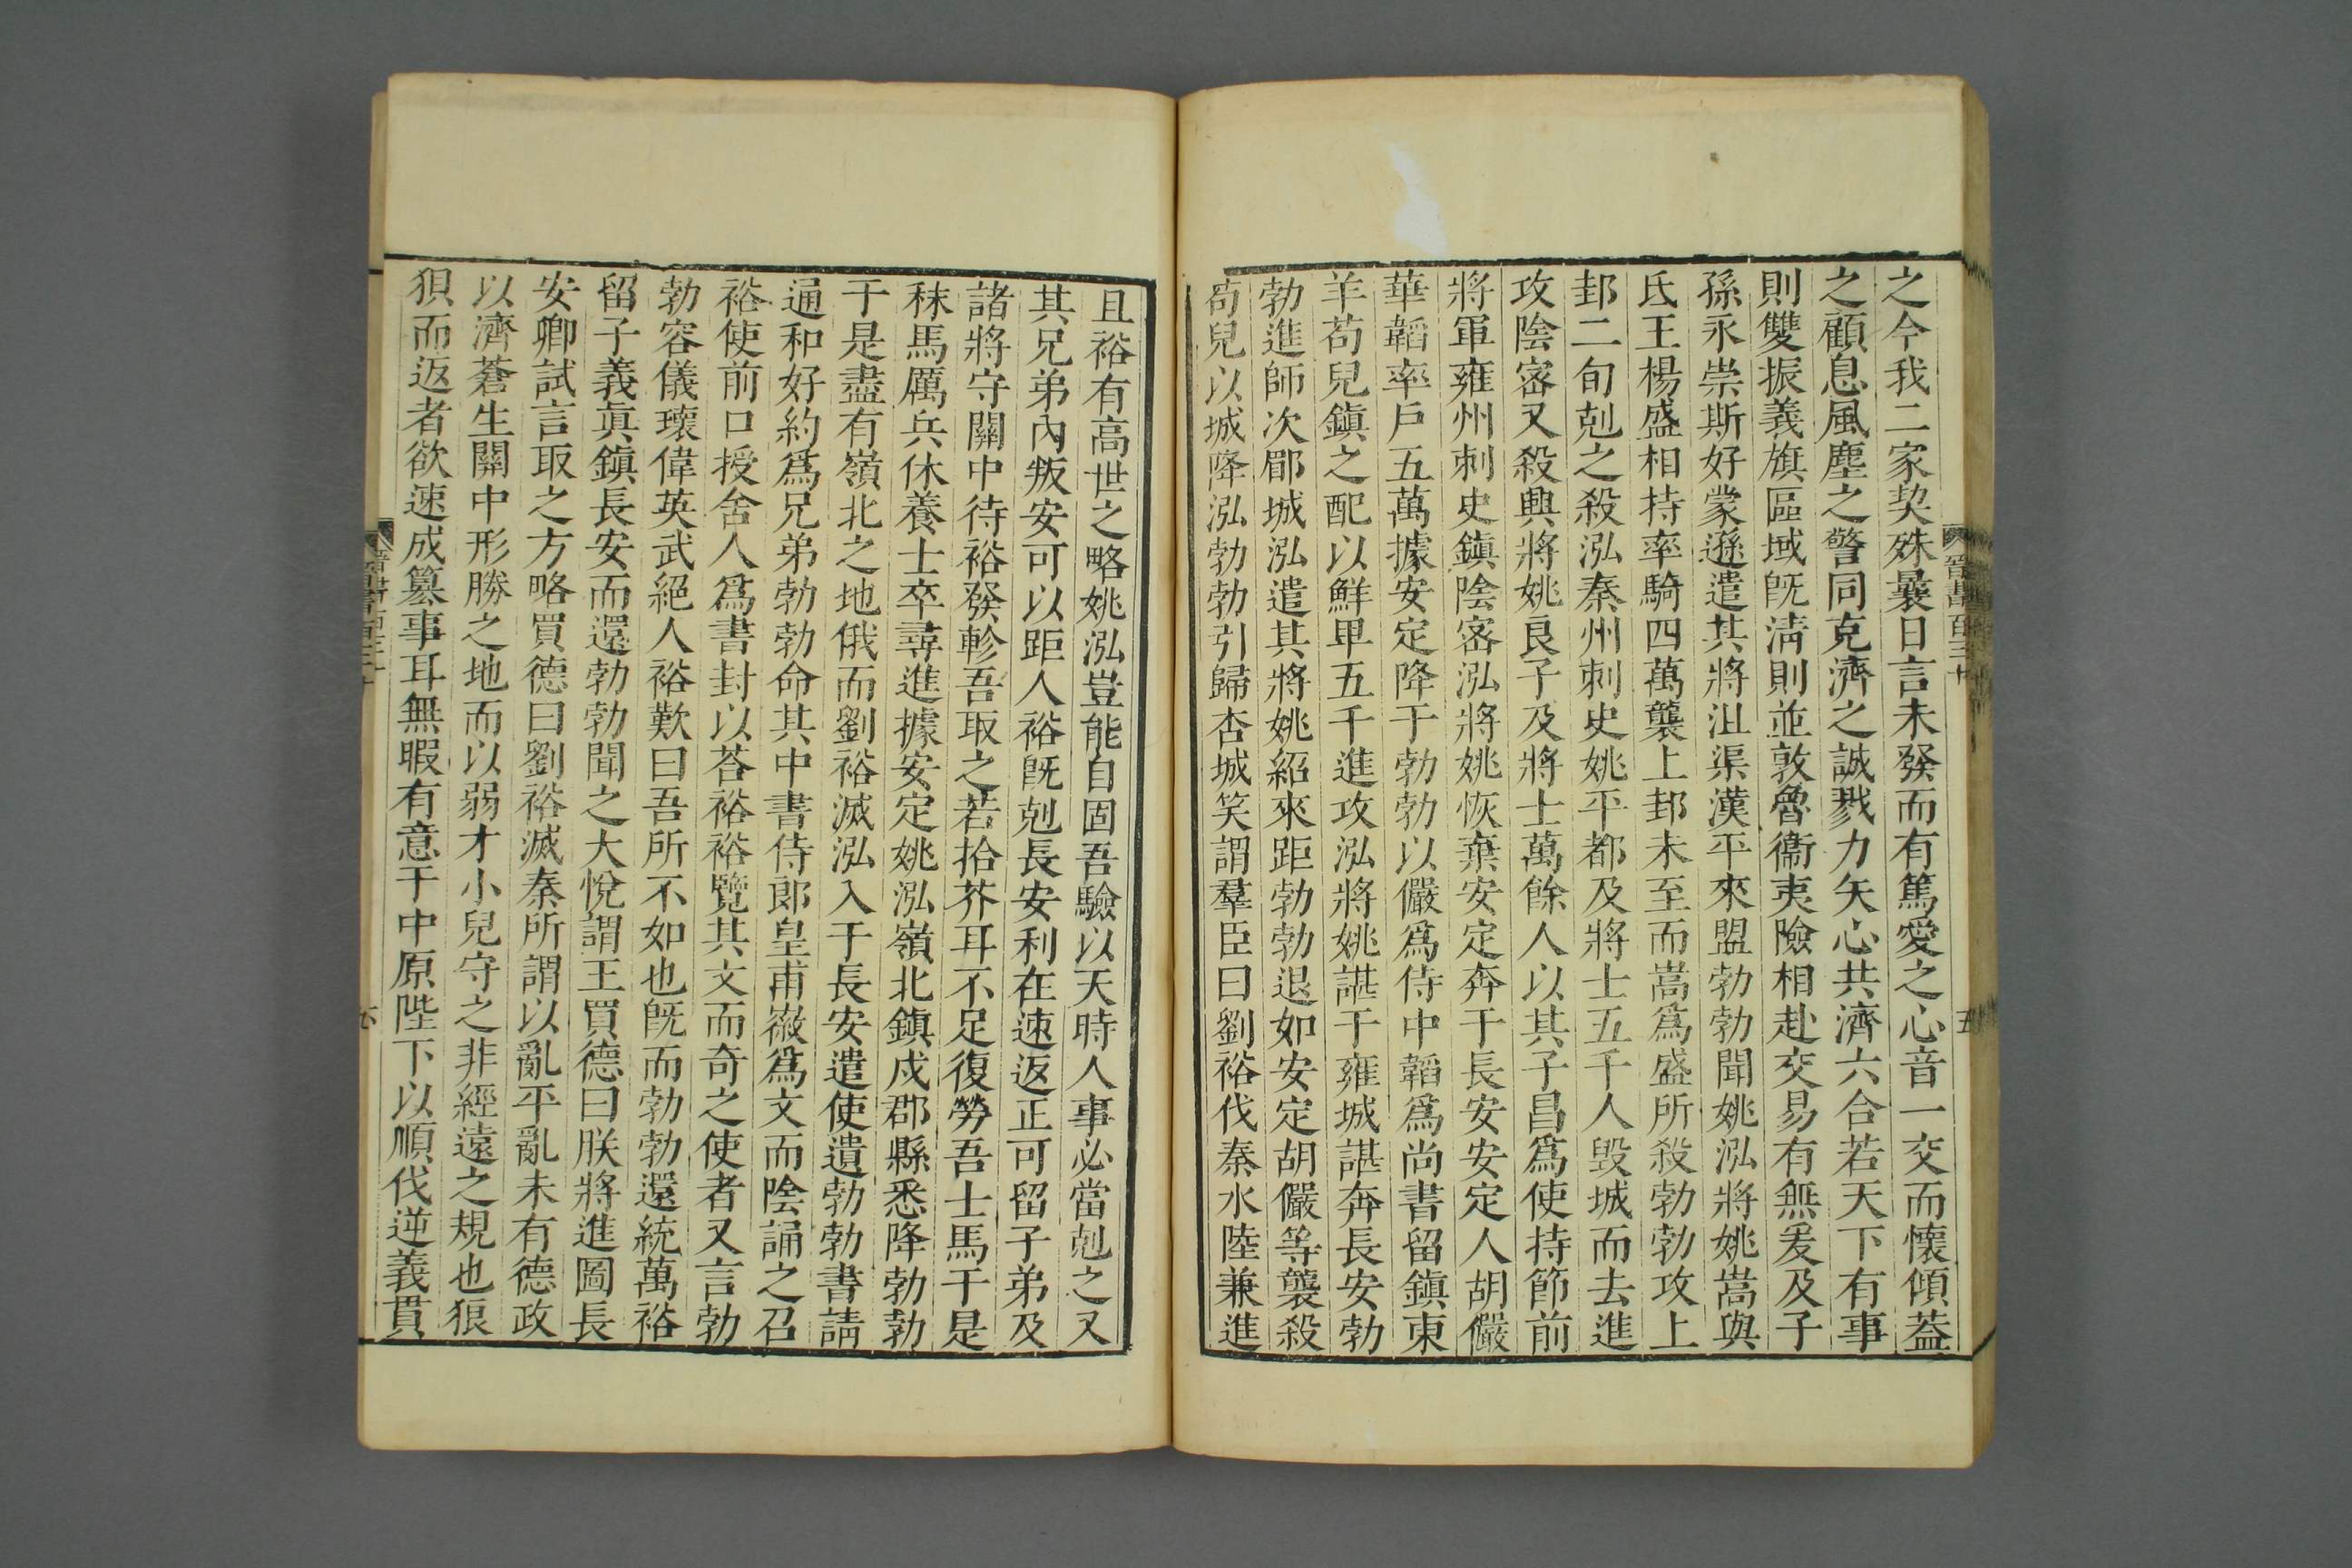 之今我二家契殊曩日言未發而有篤愛之心音一交而懷傾葢
之顧息風塵之警同克濟之誠戮力矢心共濟六合若天下有事
則雙振義旗區域旣淸則並敦魯衞夷險相赴交易有無爰及子
孫永崇斯好蒙遜遣其將沮渠漢平來盟勃勃聞姚泓將姚嵩與
氐王楊盛相持率騎四萬襲上邽未至而嵩爲盛所殺勃勃攻上
邽二旬剋之殺泓秦州刺史姚平都及將士五千人毀城而去進
攻陰密又殺興將姚良子及將士萬餘人以其子昌爲使持節前
將軍雍州刺史鎭陰密泓將姚恢棄安定奔于長安安定人胡儼
華韜率戶五萬據安定降于勃勃以儼爲侍中韜爲尚書留鎭東
羊苟兒鎭之配以鮮卑五千進攻泓將姚諶于雍城諶奔長安勃
勃進師次郿城泓遣其將姚紹來距勃勃退如安定胡儼等襲殺
苟兒以城降泓勃勃引歸杏城笑謂羣臣曰劉裕伐秦水陸兼進
且裕有高世之略姚泓豈能自固吾驗以天時人事必當剋之又
其兄弟內叛安可以距人裕旣剋長安利在速返正可留子弟及
諸將守關中待裕發軫吾取之若拾芥耳不足復勞吾士馬于是
秣馬厲兵休養士卒尋進據安定姚泓嶺北鎭戍郡縣悉降勃勃
于是盡有嶺北之地俄而劉裕滅泓入于長安遣使遺勃勃書請
通和好約爲兄弟勃勃命其中書侍郞皇甫徽爲文而陰誦之召
裕使前口授舍人爲書封以荅裕裕覽其文而奇之使者又言勃
勃容儀瓌偉英武絕人裕歎曰吾所不如也旣而勃勃還統萬裕
留子義眞鎭長安而還勃勃聞之大悅謂王買德曰朕將進圖長
安卿試言取之方略買德曰劉裕滅秦所謂以亂平亂未有德政
以濟蒼生關中形勝之地而以弱才小兒守之非經遠之規也狼
狽而返者欲速成篡事耳無暇有意于中原陛下以順伐逆義貫
晉書百三十
五
晉書百三十
六